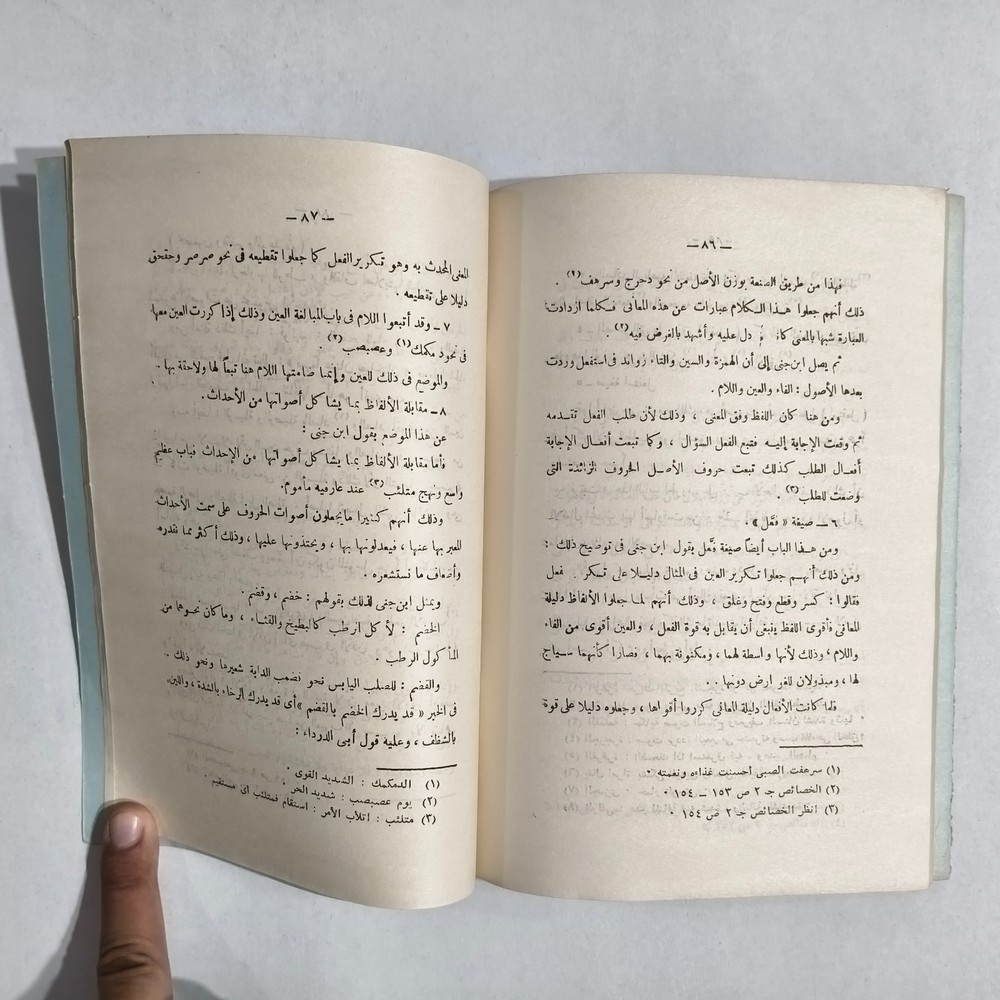 — ٨٦ —
فهذا من طريق الصنعة بوزن الأصل من نحو دحرج وسرهف(٢) .
ذلك أنهم جعلوا هـذا الـكلام عبارات عن هذه المعانى فـكلما ازدادت
العبارة شبها بالمعنى كانت دل عليه وأشهد بالغرض فيه(٢) .
ثم يصل ابن جنى إلى أن الهمزة والسين والتاء زوائد فى استفعل وردت
بعدها الأصول : الفاء والعين واللام .
ومن هنا كان اللفظ وفق المعنى ، وذلك لأن طلب الفعل تقـدمه
ثم وقعت الإجابة إليـه فتبع الفعل السؤال ، وكما تبعت أفعـال الإجابة
أفعـال الطلب كذلك تبعت حروف الأصـل الحروف الزائدة التى
وضعت للطلب(٣) .
٦ — صيغة « فعَّل » .
ومن هـذا الباب أيضاً صيغة فعَّل يقول ابن جنى فى توضيح ذلك :
ومن ذلك أنهـم جعلوا تـكرير العين فى المثال دليـلا على تـكر الفعل
فقالوا : كسر وقطع وفتح وغلق ، وذلك أنهم لمـا جعلوا الألفاظ دليلة
المعانى فأقوى اللفظ ينبغى أن يقابل به قوة الفعل ، والعين أقوى من الفاء
واللام ، وذلك لأنها واسطة لهما ، ومكنونة بهما ، فصارا كأنهما سـياج
لها ، ومبذولان للعوارض دونها . .
فلما كانت الأفعال دليلة المعانى كرروا أقواها ، وجعلوه دليلا على قوة
(١) سرهفت الصبى أحسنت غذاءه ونعمته .
(٢) الخصائص جـ ٢ ص ١٥٣ — ١٥٤ .
(٣) انظر الخصائص جـ ٢ ص ١٥٤ .
— ٨٧ —
المعنى المحدث به وهو تـكرير الفعل كما جعلوا تقطيعه فى نحو صرصر وحقحق
دليلا على تقطيعه .
٧ — وقد أتبعوا اللام فى باب المبالغة العين وذلك إذا كررت العين معها
فى نحو دمكمك(١) وعصبصب(٢) .
والموضع فى ذلك للعين وإنمـا ضامتها اللام هنا تبعاً لها ولاحقة بها .
٨ — مقابلة الألفاظ بمـا يشاكل أصواتها من الأحداث .
عن هذا الموضع يقول ابن جنى :
فأما مقابلة الألفاظ بمـا يشاكل أصواتها من الإحداث فباب عظيم
واسع ونهج متلئب(٣) عند عارفيه مأموم .
وذلك أنهم كثيرا مايجعلون أصوات الحروف على سمت الأحداث
المعبر بها عنها ، فيعدلونها بها ، ويحتذونها عليها ، وذلك أكثر مما نقدره
وأضعاف ما نستشعره .
ويمثل ابن جنى لذلك بقولهم : خضم ، وقضم .
الخضم : لأكل الرطب كالبطيخ والقثـاء ، وماكان نحوهما من
المأكول الرطب .
والقضم : للصلب اليابس نحو قضمت الدابة شعيرها ونحو ذلك .
فى الخبر « قد يدرك الخضم بالقضم » أى قد يدرك الرخاء بالشدة ، واللين
بالشظف ، وعليه قول أبى الدرداء :
(١) الدمكمك : الشديد القوى .
(٢) يوم عصبصب : شديد الحر .
(٣) متلئب : اتلأب الأمر : استقام فمتلئب أى مستقيم .